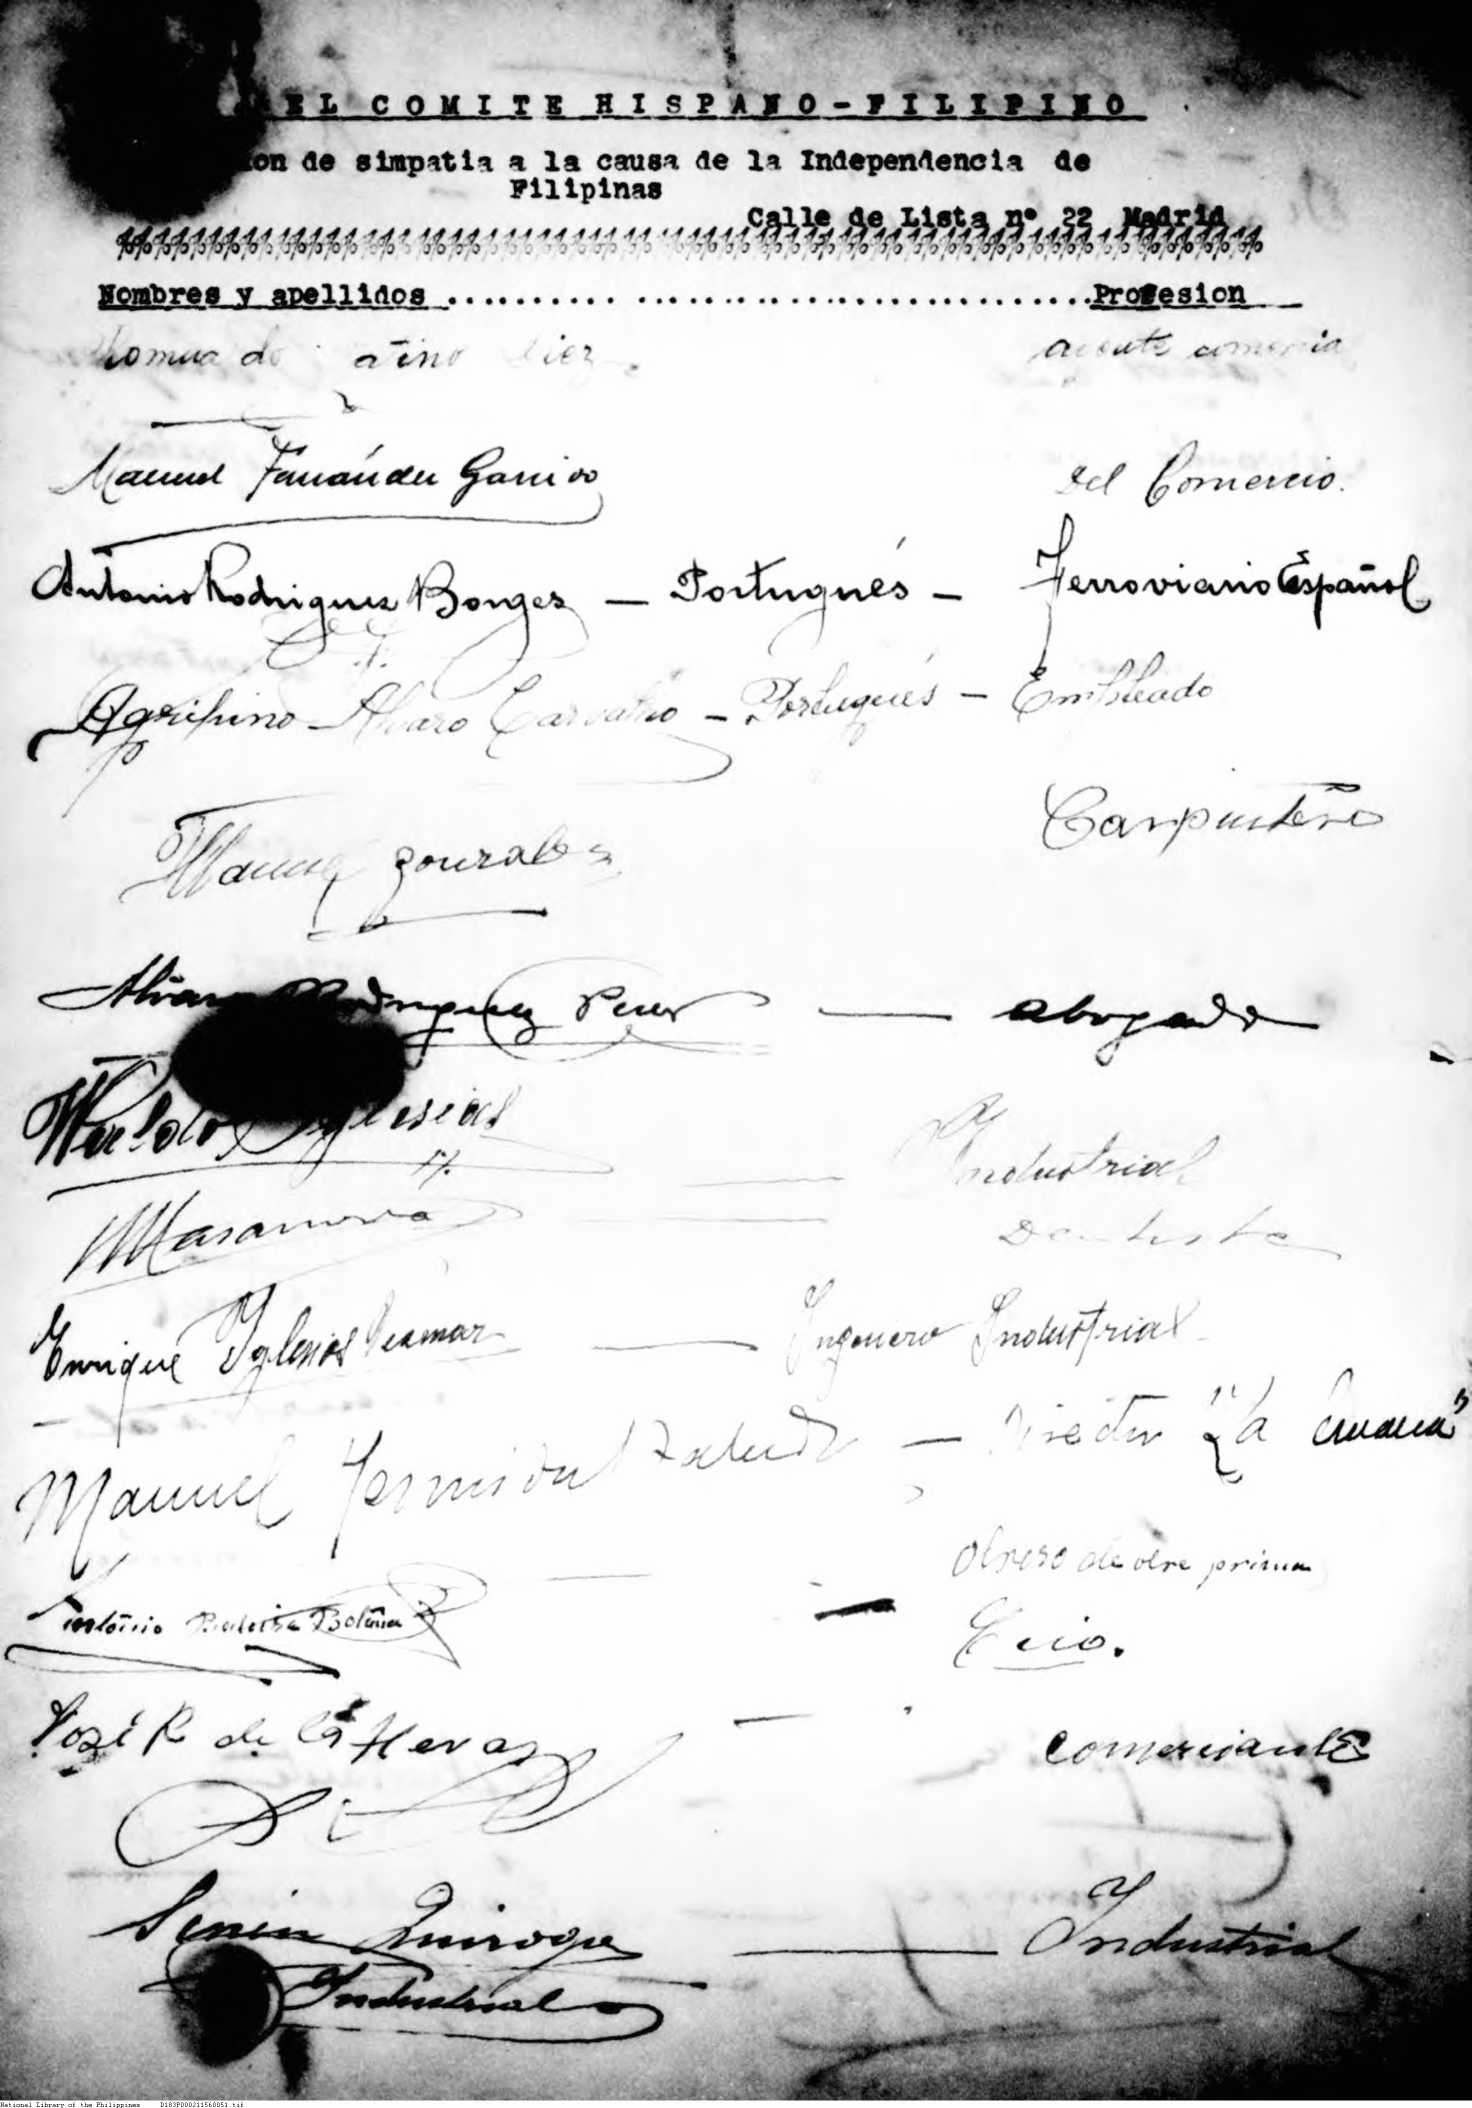 EL COMITE HISPANO-FILIPINO
on de simpatia a la causa de la Independencia de
Filipinas
Calle de Lista nº 22 Madrid
Nombres y apellidos ........................................Profesion
Manuel Fernández Garrido Del Comercio.
Antonio Rodriguez Borges — Portugués — Ferroviario Español
Agripino Alvaro Carvalho — Portugués — Empleado
Manuel Gonzalez Carpintero
Alvaro Rodriguez Perez — abogado
Waldo Iglesias — Industrial
— Dentista
Enrique Iglesias — Ingeniero Industrial
Manuel — Director "La
Antonio Bolaña — Obrero de prima
José R de las Heras — comerciante
Senén Quiroga — Industrial
Industrial
National Library of the Philippines D183P000211560051.tif